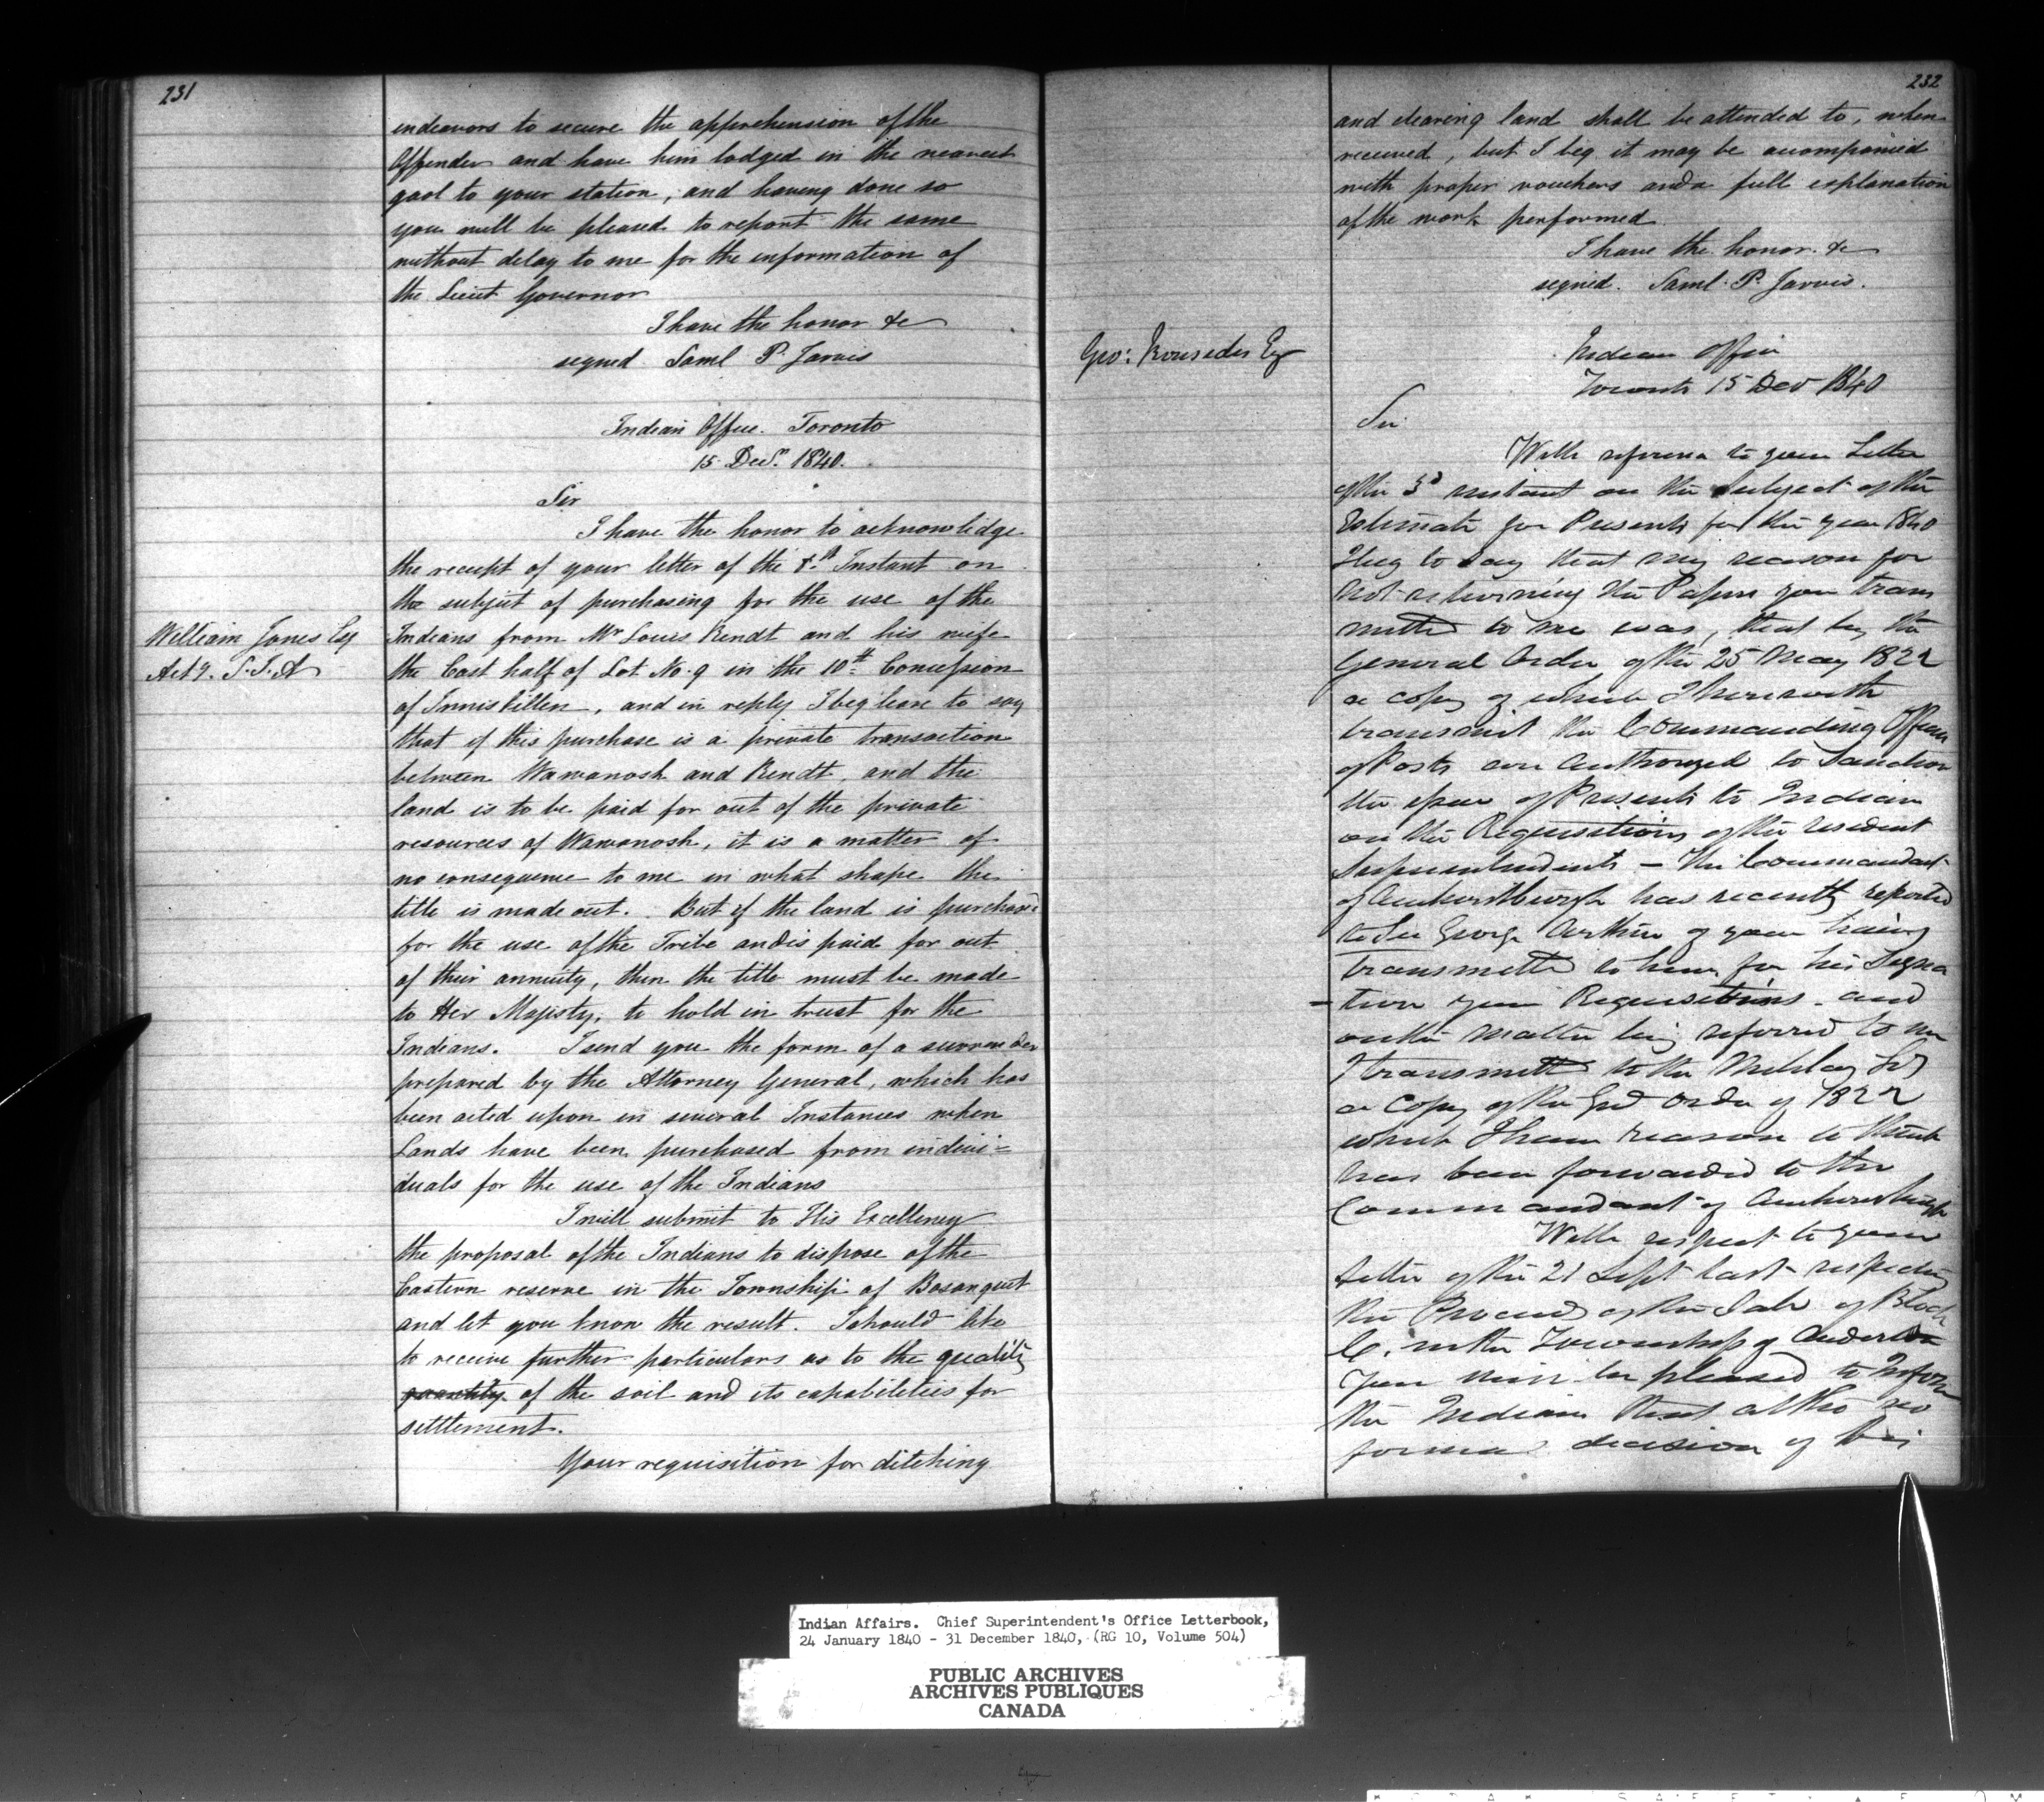 231
endeavors to secure the apprehension of the
Offender and have him lodged in the nearest
gaol to your station, and having done so
you will be pleased to report the same
without delay to me for the information of
the Lieut Governor
I have the honor &c
signed Saml P. Jarvis
Indian Office. Toronto
15 Decr. 1840.
Sir
I have the honor to acknowledge
the receipt of your letter of the Instant on
the subject of purchasing for the use of the
William Jones Esq
Indians from Mr Louis Rendt and his wife
Actg. S. I. A
the East half of Lot No. 9 in the 10th Concession
of Inniskillen, and in reply I beg leave to say
that if this purchase is a private transaction
between Wawanosh and Rendt, and the
land is to be paid for out of the private
resources of Wawanosh, it is a matter of
no consequence to me in what shape the
title is made out. But if the land is purchased
for the use of the Tribe and is paid for out
of their annuity, then the title must be made
to Her Majesty, to hold in trust for the
Indians. I send you the form of a surrender
prepared by the Attorney General, which has
been acted upon in several Instances when
Lands have been purchased from indivi=
duals for the use of the Indians
I will submit to His Excellency
the proposal of the Indians to dispose of the
Eastern reserve in the Township of Bosanquet
and let you know the result. I should like
to receive further particulars as to the quality
quantity of the soil and its capabilities for
settlement.
Your requisition for ditching
232
and clearing land shall be attended to, when
received, but I beg it may be accompanied
with proper vouchers and a full explanation
of the work performed
I have the honor &c
signed. Saml. P. Jarvis.
Geo: Ironsides Esq
Indian Office
Toronto 15 Decr 1840
Sir
With reference to your Letter
of the 3d instant on the Subject of the
Estimate for Presents for the year 1840
I beg to Say that my reason for
not returning the Papers you trans
mitted to me was, that by the
General Order of the 25 May 1822
a copy of which I herewith
transmit the Commanding Officers
of Posts are Authorized to Sanction
the issue of Presents to Indians
on the Requisitions of the resident
Superintendents – The Commandant
of Amherstburgh has recently reported
to Sir George Arthur of your having
transmitted to him for his Signa
-ture your Requisitions and
on the matter being referred to me
I transmitted to the Military Secy
a Copy of the Genl Order of 1822
which I have reason to think
has been forwarded to the
Commandant of Amherstburgh
With respect to your
Letter of the 21 Sept last respecting
the Proceeds of the Sale of Block
C. in the Township of Anderdon
You will be pleased to Inform
the Indians that altho no
formal decision of
Indian Affairs. Chief Superintendent's Office Letterbook,
24 January 1840 - 31 December 1840, (RG 10, Volume 504)
PUBLIC ARCHIVES
ARCHIVES PUBLIQUES
CANADA